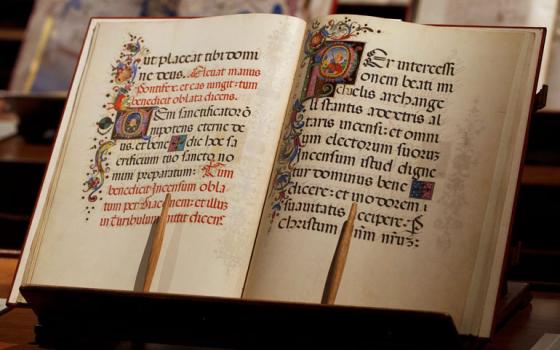 ut placeat tibi domi
ne deus. Eleuat manus
pontifex. et eas iungit: tum
benedicit oblata dicens.
Eni sanctificator o
nipotens eterne de
us. et bene dic hoc sa
crificium tuo sancto no
mini preparatum: Tum
benedicit incensum obla
tum per et illud
in turibulum mittit dicens.
Per intercessi
onem beati mi
chelis archange
li stantis a dextris al
taris incensi: et omni
um electorum suorum
incensum istud digne
tur dominus bene
dicere: et in odorem
suauitatis accipere. P
christum